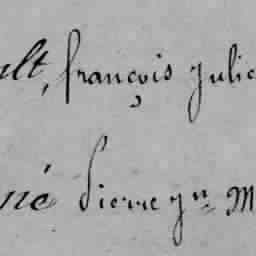 ult, françois Julie
né Pierre yn M